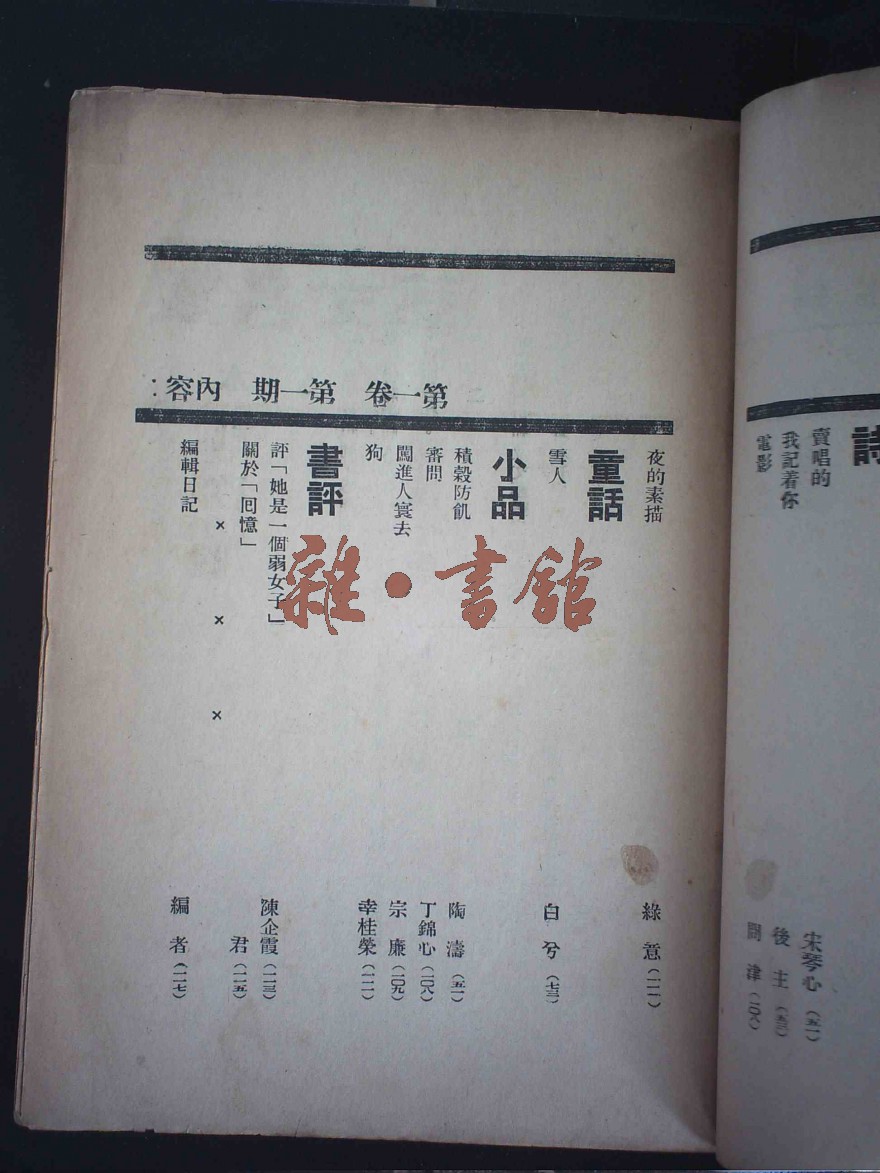 詩
賣唱的　宋琴心（五一）
我記着你　後主（五三）
電影　問津（一〇八）
第一卷　第一期　內容：
夜的素描　綠意（一一一）
童話
雪人　白兮（七三）
小品
積穀防飢　陶濤（五一）
審問　丁錦心（一〇八）
闖進人寰去　宗廉（一〇九）
狗　幸桂榮（一一一）
書評
評「她是一個弱女子」　陳企霞（一一三）
關於「囘憶」　君（一一五）
×　×　×
編輯日記　編者（一一七）
雜·書館